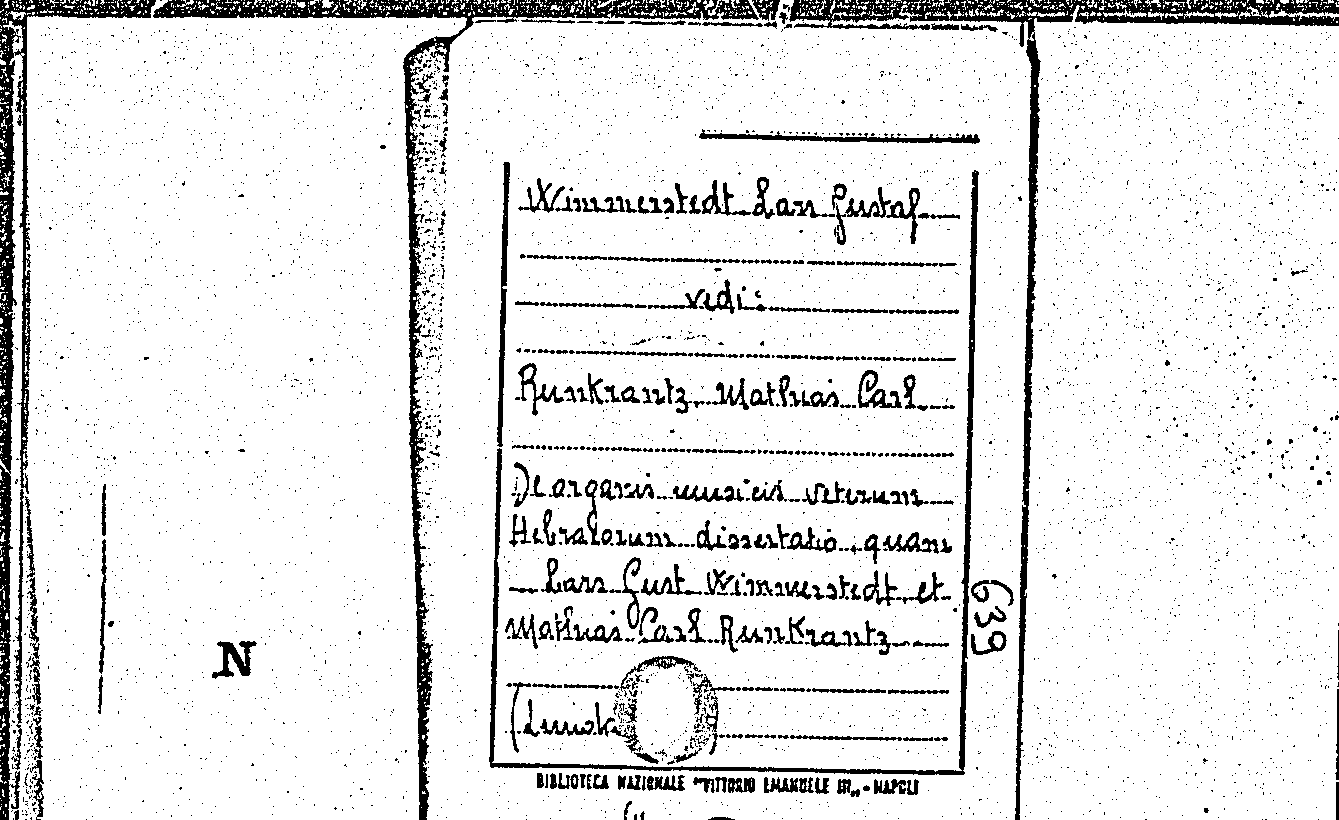 Wimmerstedt Lars Gustaf
vedi:
Runkrantz Mathias Carl
De organis musicis veterum
Hebraeorum dissertatio, quam
Lars Gust Wimmerstedt et
Mathias Carl Runkrantz
639
N
BIBLIOTECA NAZIONALE "VITTORIO EMANUELE III„ - NAPOLI